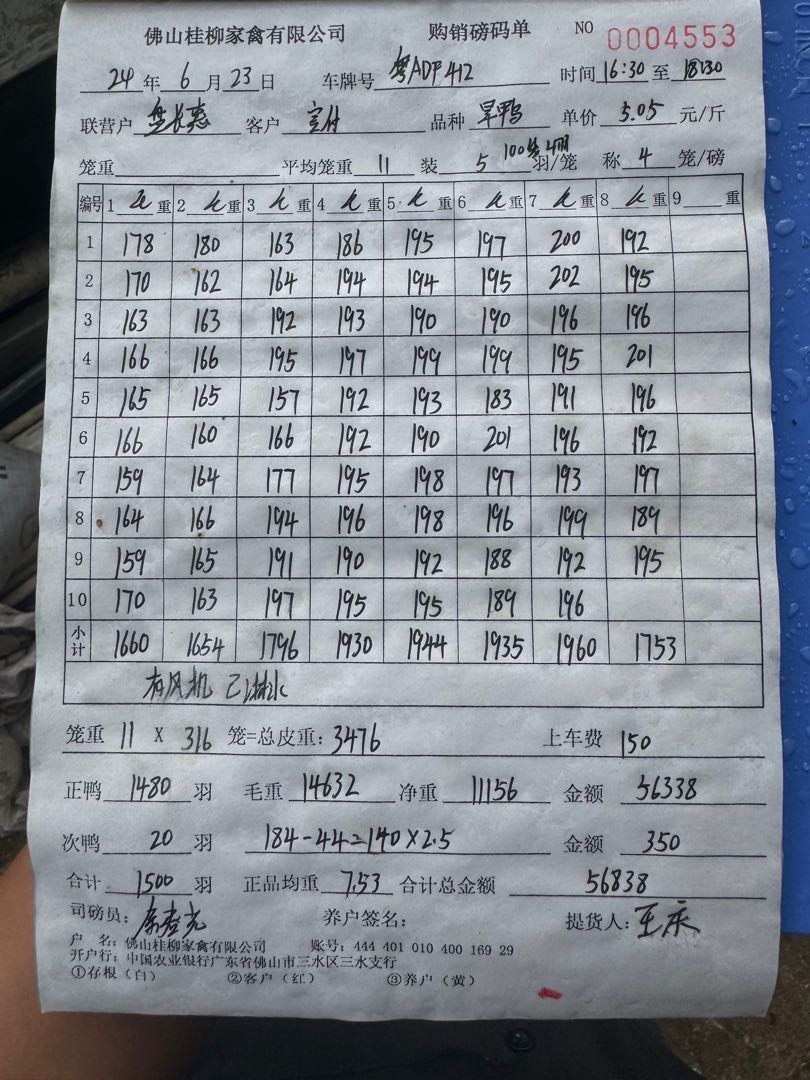 佛山桂柳家禽有限公司 购销磅码单 NO 0004553
24 年 6 月 23 日 车牌号 粤ADF412 时间 16:30 至 18:30
联营户 客户 品种 旱鸭 单价 5.05 元/斤
笼重 平均笼重 11 装 5 羽/笼 称 4 笼/磅
编号 1 毛 重 2 毛 重 3 毛 重 4 毛 重 5 毛 重 6 毛 重 7 毛 重 8 毛 重 9 重
1 178 180 163 186 195 197 200 192
2 170 162 164 194 194 195 202 195
3 163 163 192 193 190 190 196 196
4 166 166 195 197 199 199 195 201
5 165 165 157 192 193 183 191 196
6 166 160 166 192 190 201 196 192
7 159 164 177 195 198 197 193 197
8 164 166 194 196 198 196 199 189
9 159 165 191 190 192 188 192 195
10 170 163 197 195 195 189 196
小计 1660 1654 1796 1930 1944 1935 1960 1753
有风机 已淋水
笼重 11 X 316 笼=总皮重: 3476 上车费 150
正鸭 1480 羽 毛重 14632 净重 11156 金额 56338
次鸭 20 羽 184-44=140×2.5 金额 350
合计 1500 羽 正品均重 7.53 合计总金额 56838
司磅员: 养户签名: 提货人:
户 名: 佛山桂柳家禽有限公司 账号: 444 401 010 400 169 29
开户行: 中国农业银行广东省佛山市三水区三水支行
①存根(白) ②客户(红) ③养户(黄)